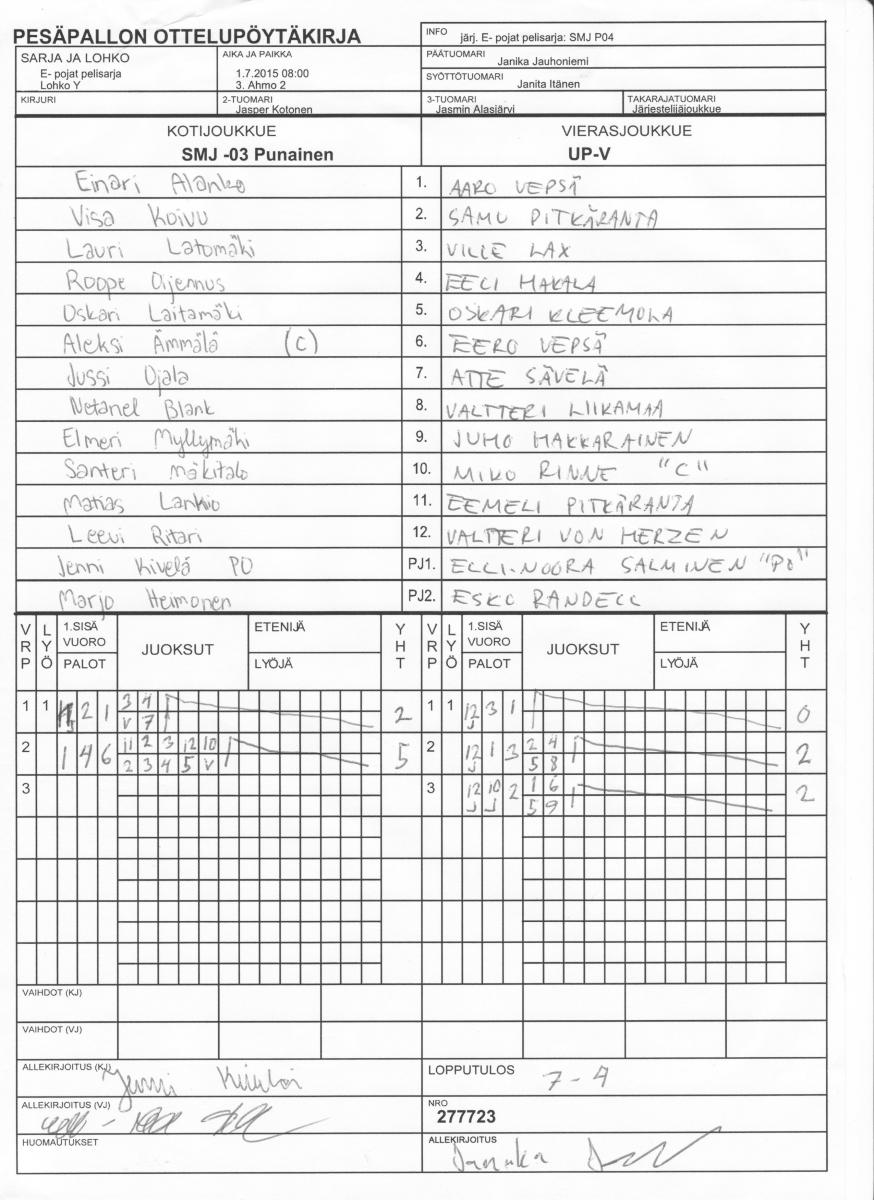 PESÄPALLON OTTELUPÖYTÄKIRJA
INFO järj. E- pojat pelisarja: SMJ P04
SARJA JA LOHKO
E- pojat pelisarja
Lohko Y
AIKA JA PAIKKA
1.7.2015 08:00
3. Ahmo 2
PÄÄTUOMARI
Janika Jauhoniemi
SYÖTTÖTUOMARI
Janita Itänen
KIRJURI
2-TUOMARI
Jasper Kotonen
3-TUOMARI
Jasmin Alasjärvi
TAKARAJATUOMARI
Järjestelijäjoukkue
KOTIJOUKKUE VIERASJOUKKUE
SMJ -03 Punainen UP-V
Einari Alanko 1. AARO VEPSÄ
Visa Koivu 2. SAMU PITKÄRANTA
Lauri Latomäki 3. VILLE LAX
Roope Oijennus 4. EELI MAKALA
Oskari Laitamäki 5. OSKARI KLEEMOLA
Aleksi Ämmälä (C) 6. EERO VEPSÄ
Jussi Ojala 7. ATTE SÄVELÄ
Netanel Blank 8. VALTTERI LIIKAMAA
Elmeri Myllymäki 9. JUHO MAKKARAINEN
Santeri Mäkitalo 10. MIKO RINNE "C"
Matias Lankio 11. EEMELI PITKÄRANTA
Leevi Ritari 12. VALTTERI VON HERZEN
Jenni Kivelä PO PJ1. ELLI-NOORA SALMINEN "PO"
Marjo Heimonen PJ2. ESKO RANDELL
VRP LYÖ 1.SISÄ VUORO PALOT JUOKSUT ETENIJÄ LYÖJÄ YHT VRP LYÖ 1.SISÄ VUORO PALOT JUOKSUT ETENIJÄ LYÖJÄ YHT
1 1 2 1 3 4 2 1 1 12 3 1 0
V 7 J
2 1 4 6 11 2 3 12 10 5 2 12 1 3 2 4 2
2 3 4 5 V J 5 8
3 3 12 10 2 1 6 2
J J 5 9
VAIHDOT (KJ)
VAIHDOT (VJ)
ALLEKIRJOITUS (KJ) Jenni
LOPPUTULOS 7 - 4
ALLEKIRJOITUS (VJ)
NRO
277723
HUOMAUTUKSET
ALLEKIRJOITUS